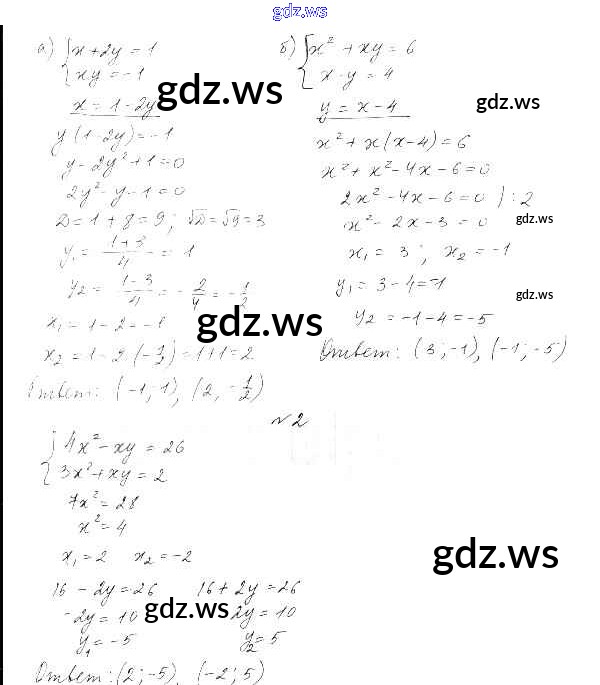 gdz.ws
а) { x + 2y = 1
xy = -1
x = 1 - 2y
y (1 - 2y) = -1
y - 2y² + 1 = 0
2y² - y - 1 = 0
D = 1 + 8 = 9; √D = √9 = 3
y₁ = (1+3)/4 = 1
y₂ = (1-3)/4 = -2/4 = -1/2
x₁ = 1 - 2 = -1
x₂ = 1 - 2(-1/2) = 1 + 1 = 2
Ответ: (-1; 1), (2, -1/2)
б) { x² + xy = 6
x - y = 4
y = x - 4
x² + x(x - 4) = 6
x² + x² - 4x - 6 = 0
2x² - 4x - 6 = 0 ) : 2
x² - 2x - 3 = 0
x₁ = 3; x₂ = -1
y₁ = 3 - 4 = -1
y₂ = -1 - 4 = -5
Ответ: (3; -1), (-1; -5)
gdz.ws
gdz.ws
gdz.ws
gdz.ws
gdz.ws
№2
{ 4x² - xy = 26
3x² + xy = 2
7x² = 28
x² = 4
x₁ = 2 x₂ = -2
16 - 2y = 26 16 + 2y = 26
-2y = 10 2y = 10
y₁ = -5 y₂ = 5
Ответ: (2; -5), (-2; 5)
gdz.ws
gdz.ws